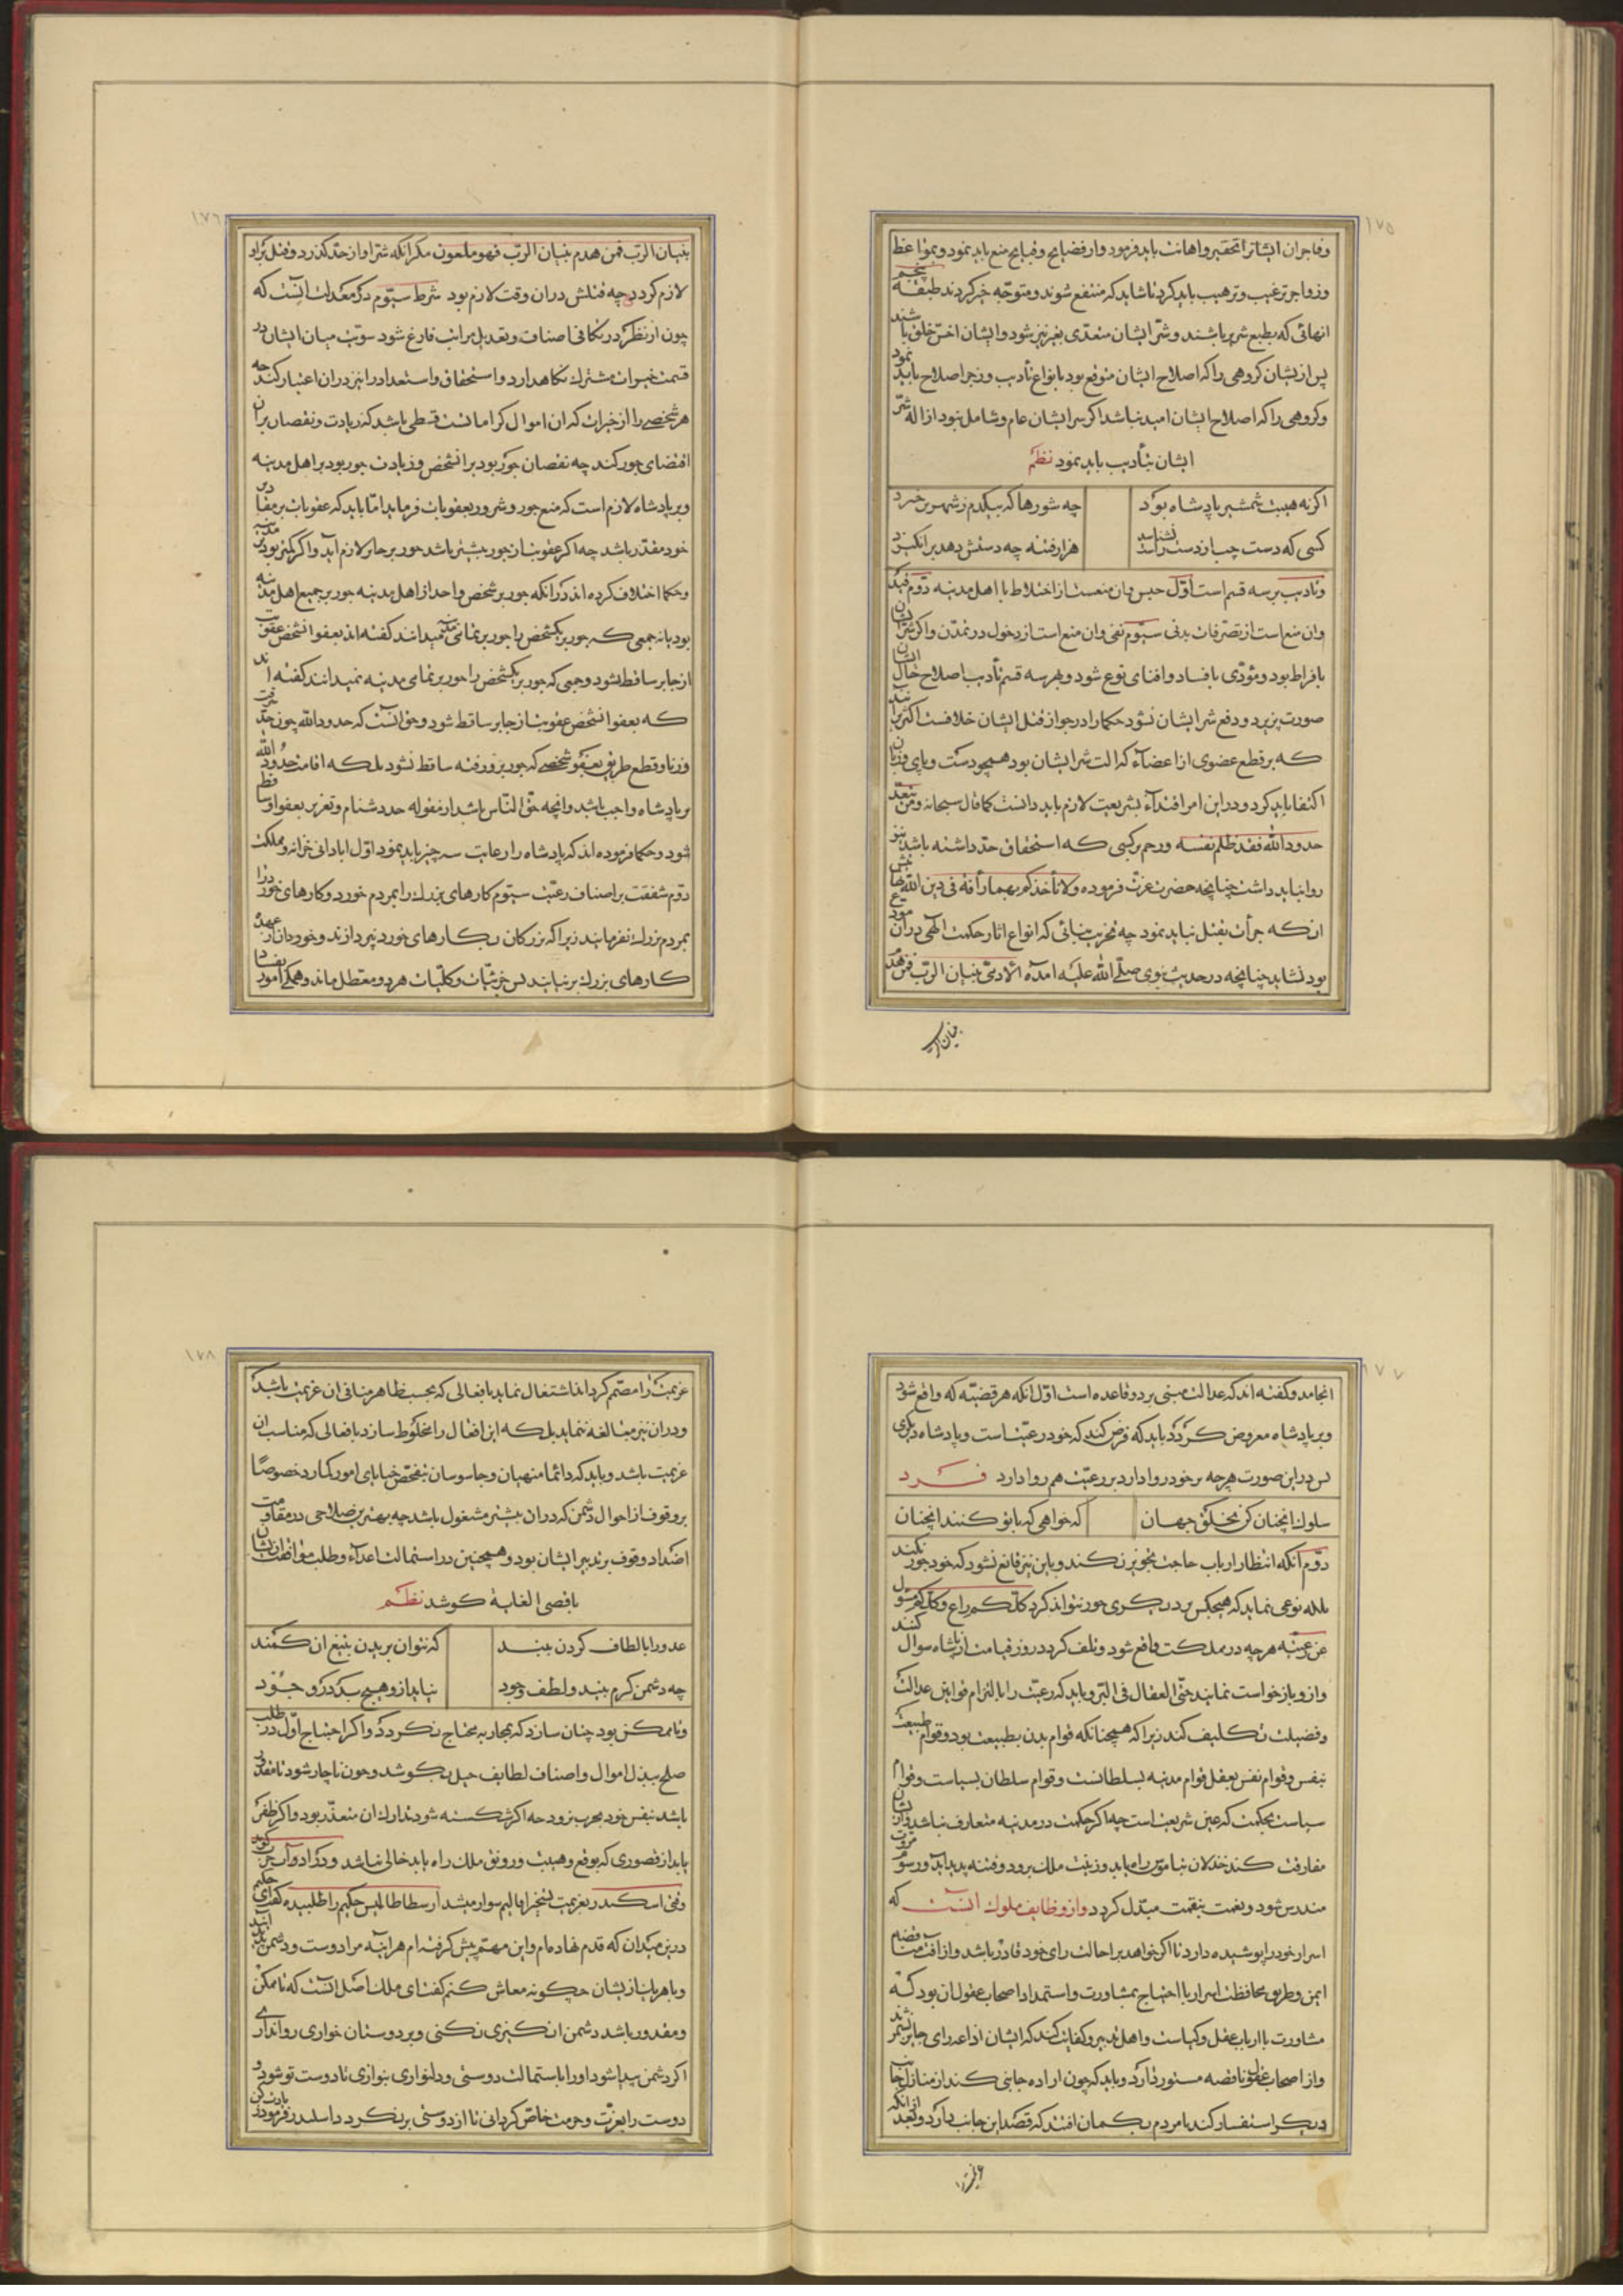 ١٧٥
وفاجران ایشانرا تحقیر و اهانت باید فرمود و از فضایح و قبایح منع باید نمود و بمواعظ
و زواجر ترغیب و ترهیب باید کرد تا شاید که منتفع شوند و متوجّه خیر کردند طبقهٔ پنجم
انهائی که بطبع شریر باشند و شرّ ایشان متعدّی بغیر نیز شود و ایشان اخسّ خلق باشند
پس از یشان کروهی را که اصلاح ایشان متوقع بود بانواع تأدیب و زجر اصلاح باید نمود
و کروهی را که اصلاح ایشان امید نباشد اکر شر ایشان عام و شامل نبود ازاله شرّ
ایشان بتأدیب باید نمود نظم
اکر نه هیبت شمشیر پادشاه بود
چه شورها که بیکدم ز شهر بر خیزد
کسی که دست چپ از دست راست نشناسد
هزار فتنه چه دستش دهد بر انکیزد
و تادیب بر سه قسم است اوّل حبس و ان منعست از اختلاط با اهل مدینه دوّم قید
و ان منع است از تصرّفات بدنی سیّوم نفی و ان منع است از دخول در تمدّن و اکر شرّ ان
بافراط بود و مؤدّی بافساد و افنای نوع شود و بهر سه قسم تأدیب اصلاح حال ایشان
صورت پزیرد و دفع شر ایشان نشود حکما را در جواز قتل ایشان خلافست اکثر برانند
که بر قطع عضوی از اعضآء که الت شر ایشان بود همچو دست و پای و زبان
اکتفا باید کرد و در این امر اقتدآء بشریعت لازم باید دانست کما قال سبحانه و من یتعدّ
حدود اللّه فقد ظلم نفسه و رحم بر کسی که استحقاق حدّ داشته باشد نیز
روا نباید داشت چنانچه حضرت عزّت فرموده و لا تأخذکم بهما رأفة فی دین اللّه
از که جرأت بقتل نباید نمود چه تخریب بنائی که انواع اثار حکمت الهی در ان
بود نشاید چنانچه در حدیث نبوی صلّی اللّه علیه امده الادمیّ بنیان الرّب فمن هدم
بنیان الرب
١٧٦
بنیان الربّ فمن هدم بنیان الربّ فهو ملعون مکر انکه شرّ او از حدّ کذرد و قتل براو
لازم کردد چه قتلش در ان وقت لازم بود شرط سیّوم در معدلت انست که
چون از نظر در تکافی اصناف و تعدیل مراتب فارغ شود سوّیت میان ایشان در
قسمت خیرات مشترك نکاهدارد و استحقاق و استعداد را نیز در ان اعتبار کند چه
هر شخصی را از خیرات که ان اموال کراماتست قسطی باشد که زیادت و نقصان بران
اقتضای جور کند چه نقصان جور بود بر انشخص و زیادت جور بود بر اهل مدینه
و بر پادشاه لازم است که منع جور و شرور بعقوبات فرماید امّا باید که عقوبات بر مقادیر
خود مقدّر باشد چه اکر عقوبت از جور بیشتر باشد جور بر جائر لازم آید و اکر کمتر بود بر مدینه
و حکما اختلاف کرده اند در انکه جور بر شخص واحد از اهل مدینه جور بر جمیع اهل مدینه
بود یا نه جمعی که جور بر یکشخص را جور بر تمامی مدینه میدانند کفته اند بعفو انشخص عقوبت
از جابر ساقط نشود و جمعی که جور بر یکشخص را جور بر تمای مدینه نمیدانند کفته اند
که بعفو انشخص عقوبت از جابر ساقط شود و حق انست که حدود اللّه چون حدّ
و زنا و قطع طریق بعفو شخصی که جور بر و رفته ساقط نشود بلکه اقامت حدود اللّه
بر پادشاه واجب باشد و انچه حقّ النّاس باشد از مقوله حد دشنام و تعزیر بعفو او ساقط
شود و حکما فرموده اند که پادشاه را رعایت سه چیز باید نمود اوّل ابادانی خزانه و مملکت
دوّم شفقت بر اصناف رعیّت سیّوم کارهای بزرك را بمردم خورد و کارهای خورد را
بمردم بزرك نفرمایند زیرا که بزرکان بکارهای خورد نپردازند و خوردان از عهدهٔ
کارهای بزرك بر نیایند پس جزئیّات و کلیّات هر دو معطل ماند و همکی امور بفساد
١٧٧
انجامد و کفته اند که عدالت مبنی بر دو قاعده است اوّل انکه هر قضیّه که واقع شود
و بر پادشاه معروض کردد باید که فرض کند که خود رعیّت است و پادشاه دیکری
پس در این صورت هر چه بر خود روا دارد بر رعیّت هم روا دارد فرد
سلوك انچنان کن بخلق جهان
که خواهی که با تو کنند انچنان
دوّم انکه انتظار ارباب حاجت تجویز نکند و باین نیز قانع نشود که خود جور نکند
بلکه نوعی نماید که هیچکس بر دیکری جور نتواند کرد کلّکم راع و کلّکم مسئول
عن رعیّته هر چه در مملکت واقع شود و تلف کردد روز قیامت از پادشاه سوال کنند
و از و باز خواست نمایند حتّی العقال فی البّر و باید که رعیّت را بالتزام قوانین عدالت
و فضیلت تکلیف کند زیرا که همچنانکه قوام بدن بطبیعت بود و قوام طبیعت
بنفس و قوام نفس بعقل قوام مدینه بسلطانست و قوام سلطان بسیاست و قوام
سیاست بحکمت که عین شریعت است چه اکر حکمت در مدینه متعارف نباشد و از ان
مفارقت کند خذلان بناموس راه یابد و زینت ملك برود و فتنه پدید آید و رسوم مروّت
مندرس شود و نعمت بنقمت مبدّل کردد و از وظایف ملوك انست که
اسرار خود را پوشیده دارد تا اکر خواهد بر احالت رای خود قادر باشد و از افت مناقضه
ایمن و طریق محافظت اسرار با احتیاج بمشاورت و استمداد اصحاب عقول ان بود که
مشاورت با ارباب عقل و کیاست و اهل تدبیر و کفایت کند که ایشان اذاعه رای جایز نشمرند
و از اصحاب عقول ناقصه مستور دارد و باید که چون اراده جانبی کند از منازل جانب
دیکر استفسار کند تا مردم بکمان افتند که قصد این جانب دارد و بعد از انکه
عزیمت را
١٧٨
عزیمت را مصمّم کرداند اشتغال نماید بافعالی که بحسب ظاهر منافی ان عزیمت باشد
و در ان نیز مبالغه ننماید بلکه این افعال را مخلوط سازد بافعالی که مناسب ان
عزیمت باشد و باید که دائما منهیان و جاسوسان بتفحّص خبایای امور کمارد خصوصًا
بر وقوف از احوال دشمن که در ان بیشتر مشغول باشد چه بهترین صلاحی در مقاومت
اضداد وقوف بر تدبیر ایشان بود و همچنین در استمالت اعدآء و طلب موافقت از یشان
باقصی الغایة کوشد نظم
عدو را بالطاف کردن ببند
که نتوان بریدن بتیغ ان کمند
چه دشمن کرم بیند و لطف وجود
نیاید از و هیچ بد در وجود
و تا ممکن بود چنان سازد که بمحاربه محتاج نکردد و اکر احتیاج اوّل در طلب
صلح ببذل اموال و اصناف لطایف حیل بکوشد و چون ناچار شود تا مقدور
باشد بنفس خود بحرب نرود چه اکر شکسته شود تدارك ان متعذّر بود و اکر ظفر
یابد از قصوری که بوقع و هیبت و رونق ملك راه یابد خالی نباشد و در اداب حرب کوید
وقتی اسکندر بعزیمت تسخیر اقالیم سوار میشد ارسطاطالیس حکیم را طلبیده کفت ای حکیم
درین میدان که قدم نهاده ام و این مهمّ پیش کرفته ام هر اینه مرا دوست و دشمن پدید ایند
و با هر یك از یشان چکونه معاش کنم کفت ای ملك اصل انست که تا ممکن
و مقدور باشد دشمن انکیزی نکنی و بر دوستان خواری روا نداری
اکر دشمن پیدا شود او را باستمالت دوستی و دلنوازی بنوازی تا دوست تو شود و
دوست را بعزّت و حرمت خاصّ کردانی تا از دوستی بر نکردد اسکندر فرمود